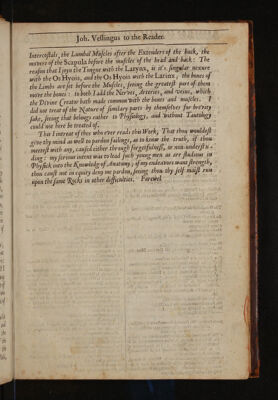 Joh. Veslingus to the Reader.
Intercostals, the Lumbal Muscles after the Extenders of the back, the
movers of the Scapula before the muscles of the head and back: The
reason that I joyn the Tongue with the Larynx, is it's singular nexure
with the Os Hyois, and the Os Hyois with the Larinx; the bones of
the Limbs are set before the Muscles, seeing the greatest part of them
move the bones: to both I add the Nerves, Arteries, and veins, which
the Divine Creator hath made common with the bones and muscles. I
did not treat of the Nature of similary parts by themselves for brevity
sake, seeing that belongs rather to Physiology, and without Tautology
could not here be treated of.
This I intreat of thee who ever reads this Work, That thou wouldest
give thy mind as well to pardon failings, as to know the truth, if thou
meetest with any, caused either through forgetfulness, or non-understan-
ding: my serious intent was to lead such young men as are studious in
Physick into the Knowledg of Anatomy; if my endeavors want strength,
thou canst not in equity deny me pardon, seeing thou thy self maist run
upon the same Rocks in other difficulties. Farewel